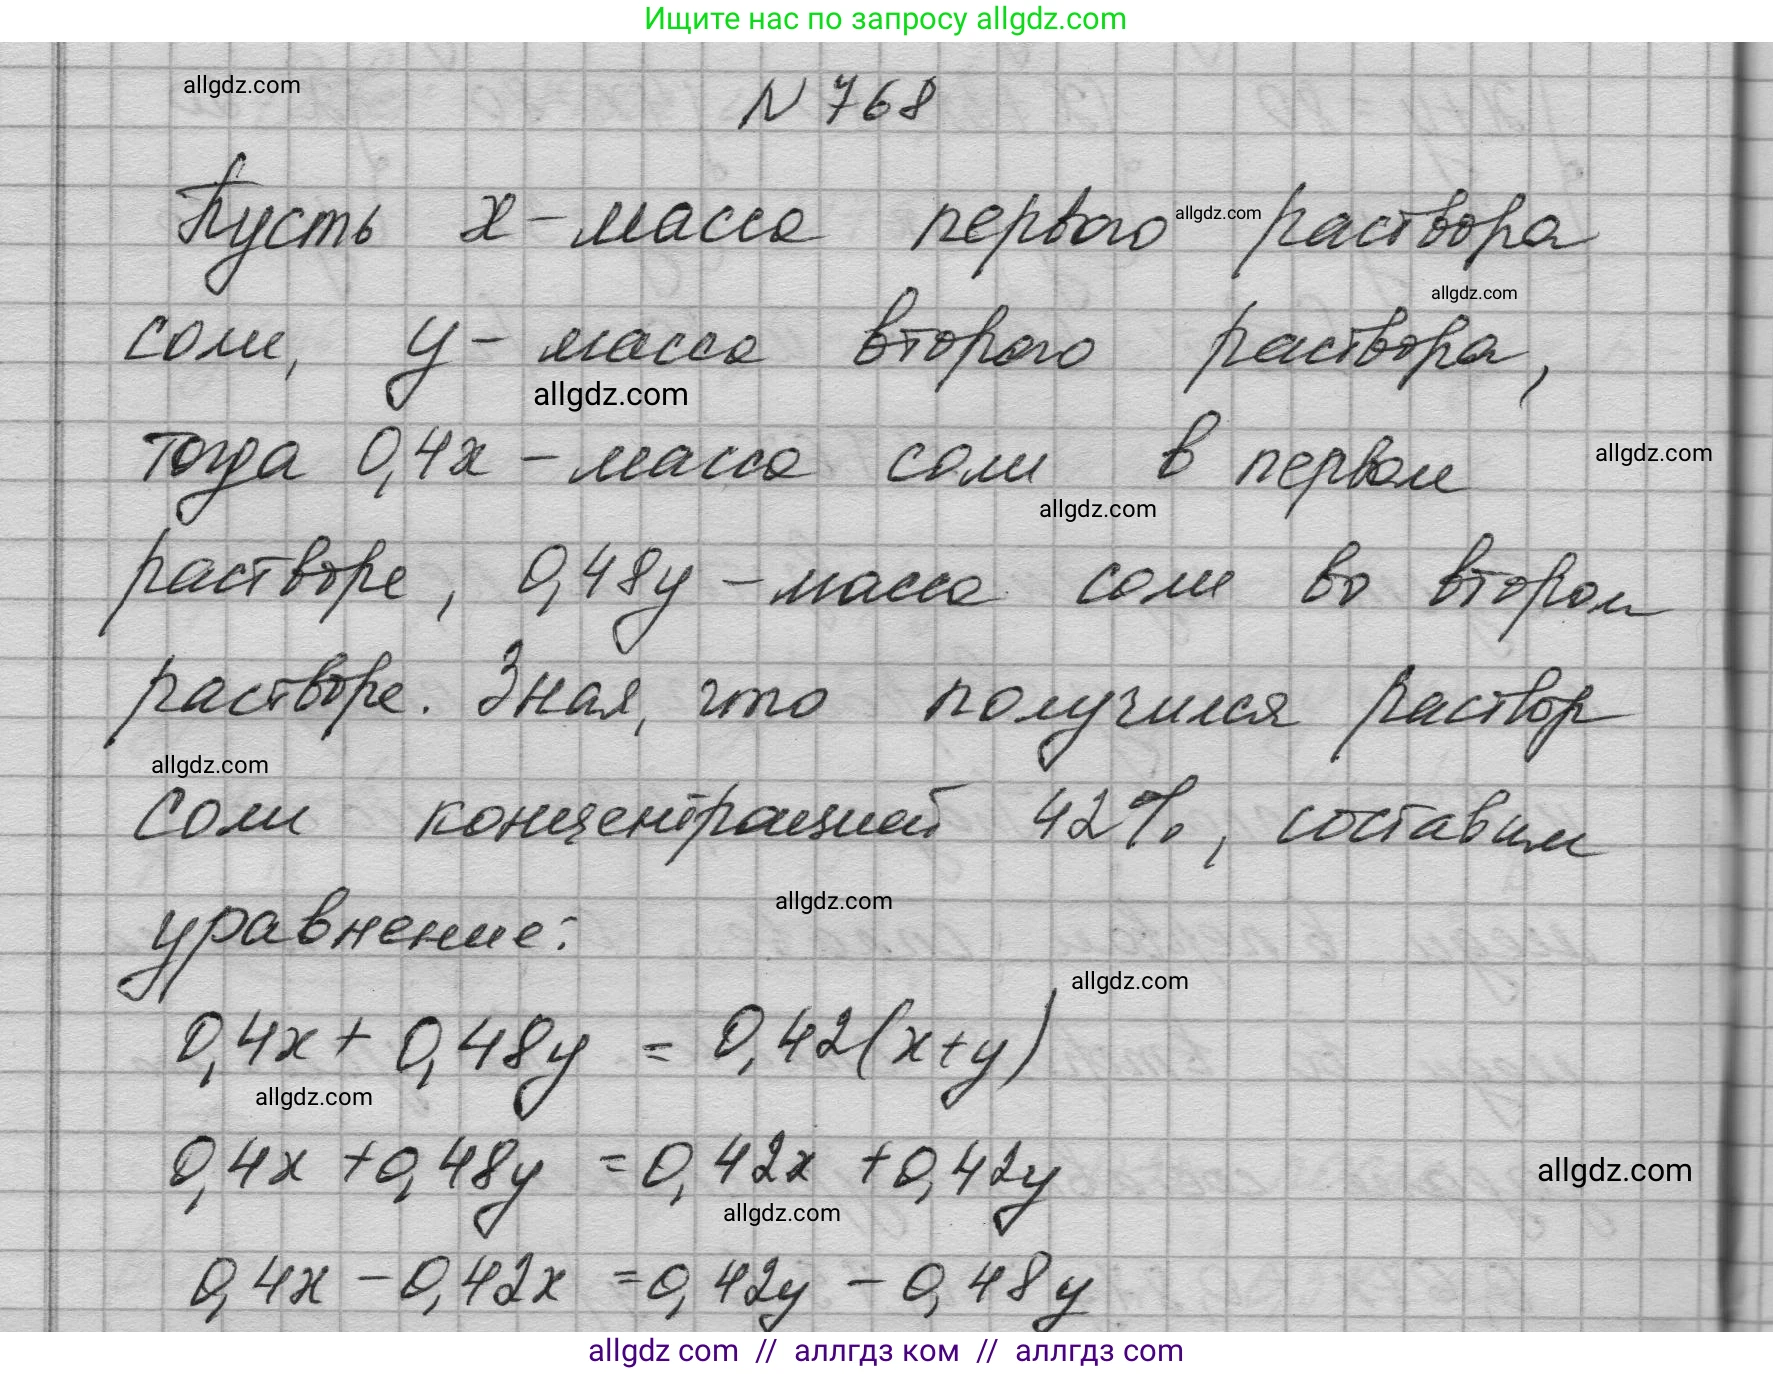 Ищите нас по запросу allgdz.com
allgdz.com
N 768
Пусть x – масса первого allgdz.com раствора
allgdz.com
соли, y – масса второго раствора,
allgdz.com
тогда 0,4x – масса соли в первом allgdz.com
allgdz.com
растворе, 0,48y – масса соли во втором
растворе. Зная, что получился раствор
allgdz.com
соли концентрацией 42%, составим
allgdz.com
уравнение:
allgdz.com
0,4x + 0,48y = 0,42(x+y)
allgdz.com
0,4x + 0,48y = 0,42x + 0,42y
allgdz.com
allgdz.com
0,4x – 0,42x = 0,42y – 0,48y
allgdz com // аллгдз ком // аллгдз com